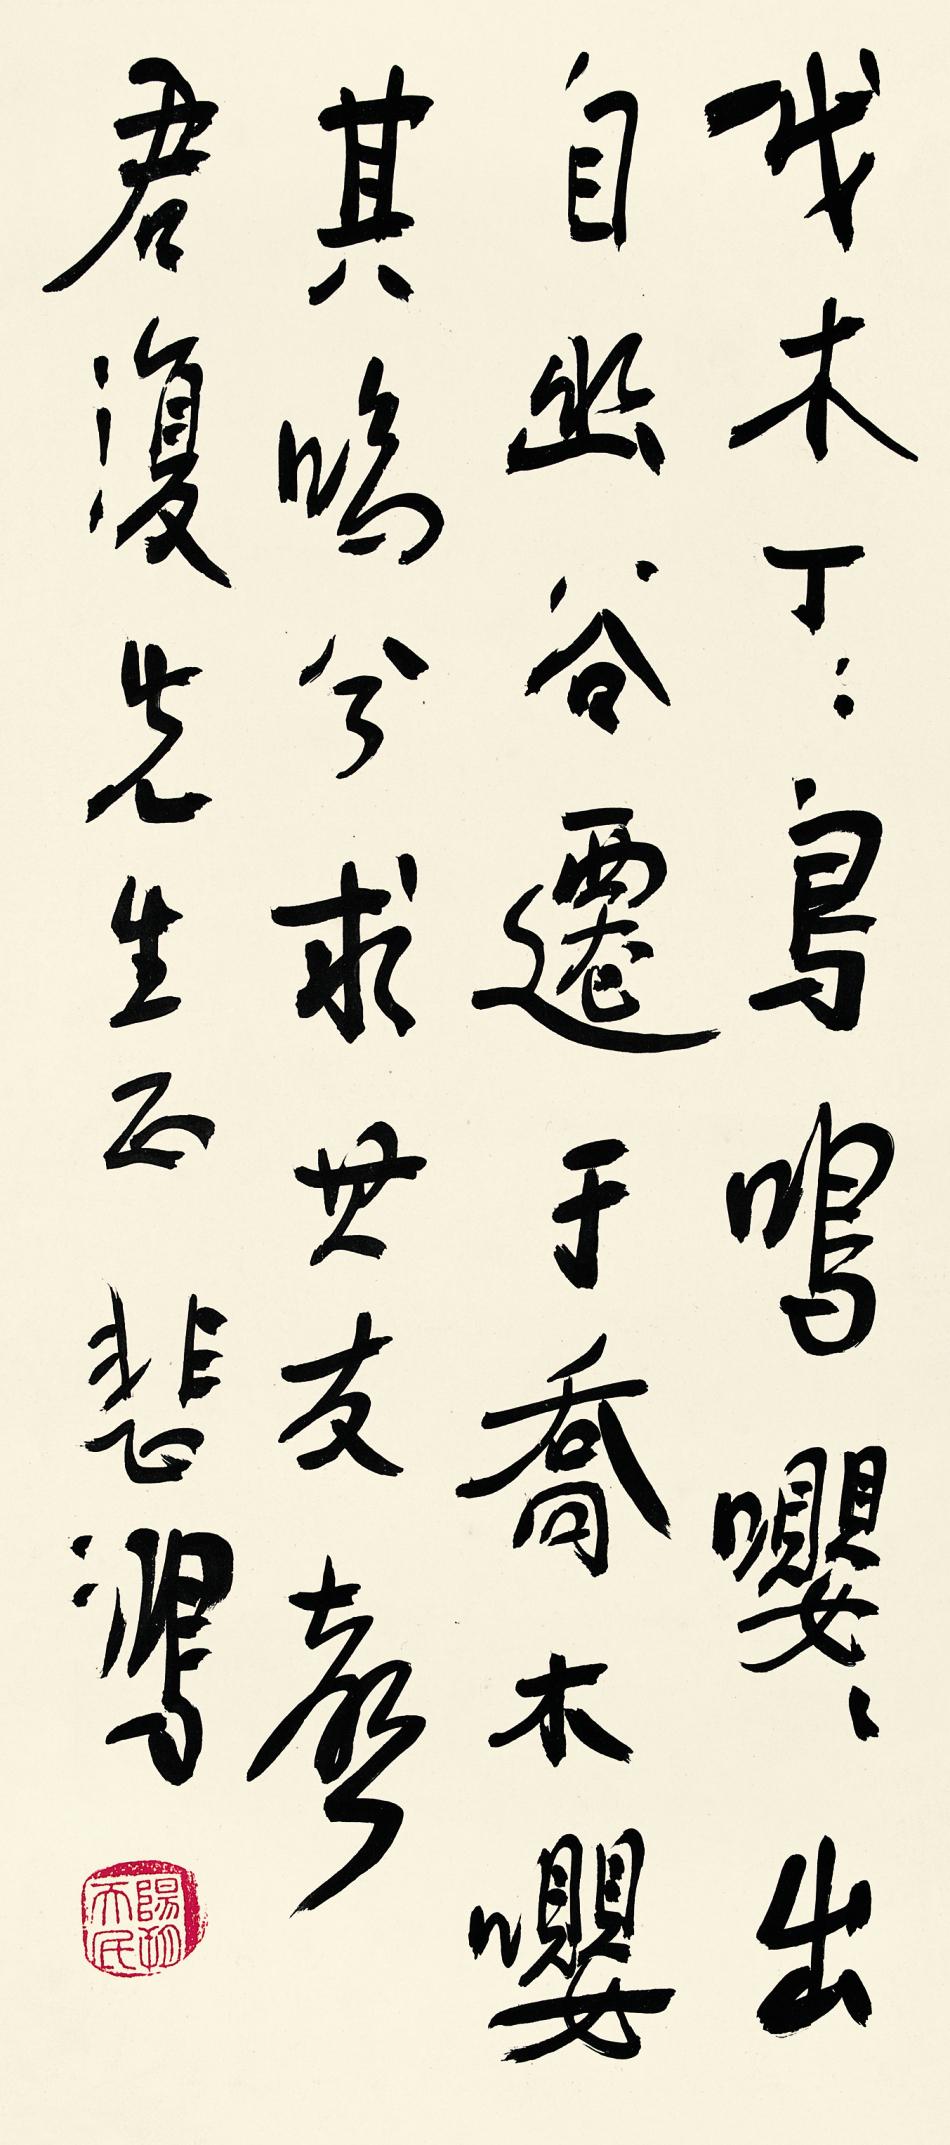 伐木丁〻鳥鳴嚶〻出
自幽谷遷于喬木嚶
其鳴兮求其友聲
君復先生正 悲鴻
陽朔天民